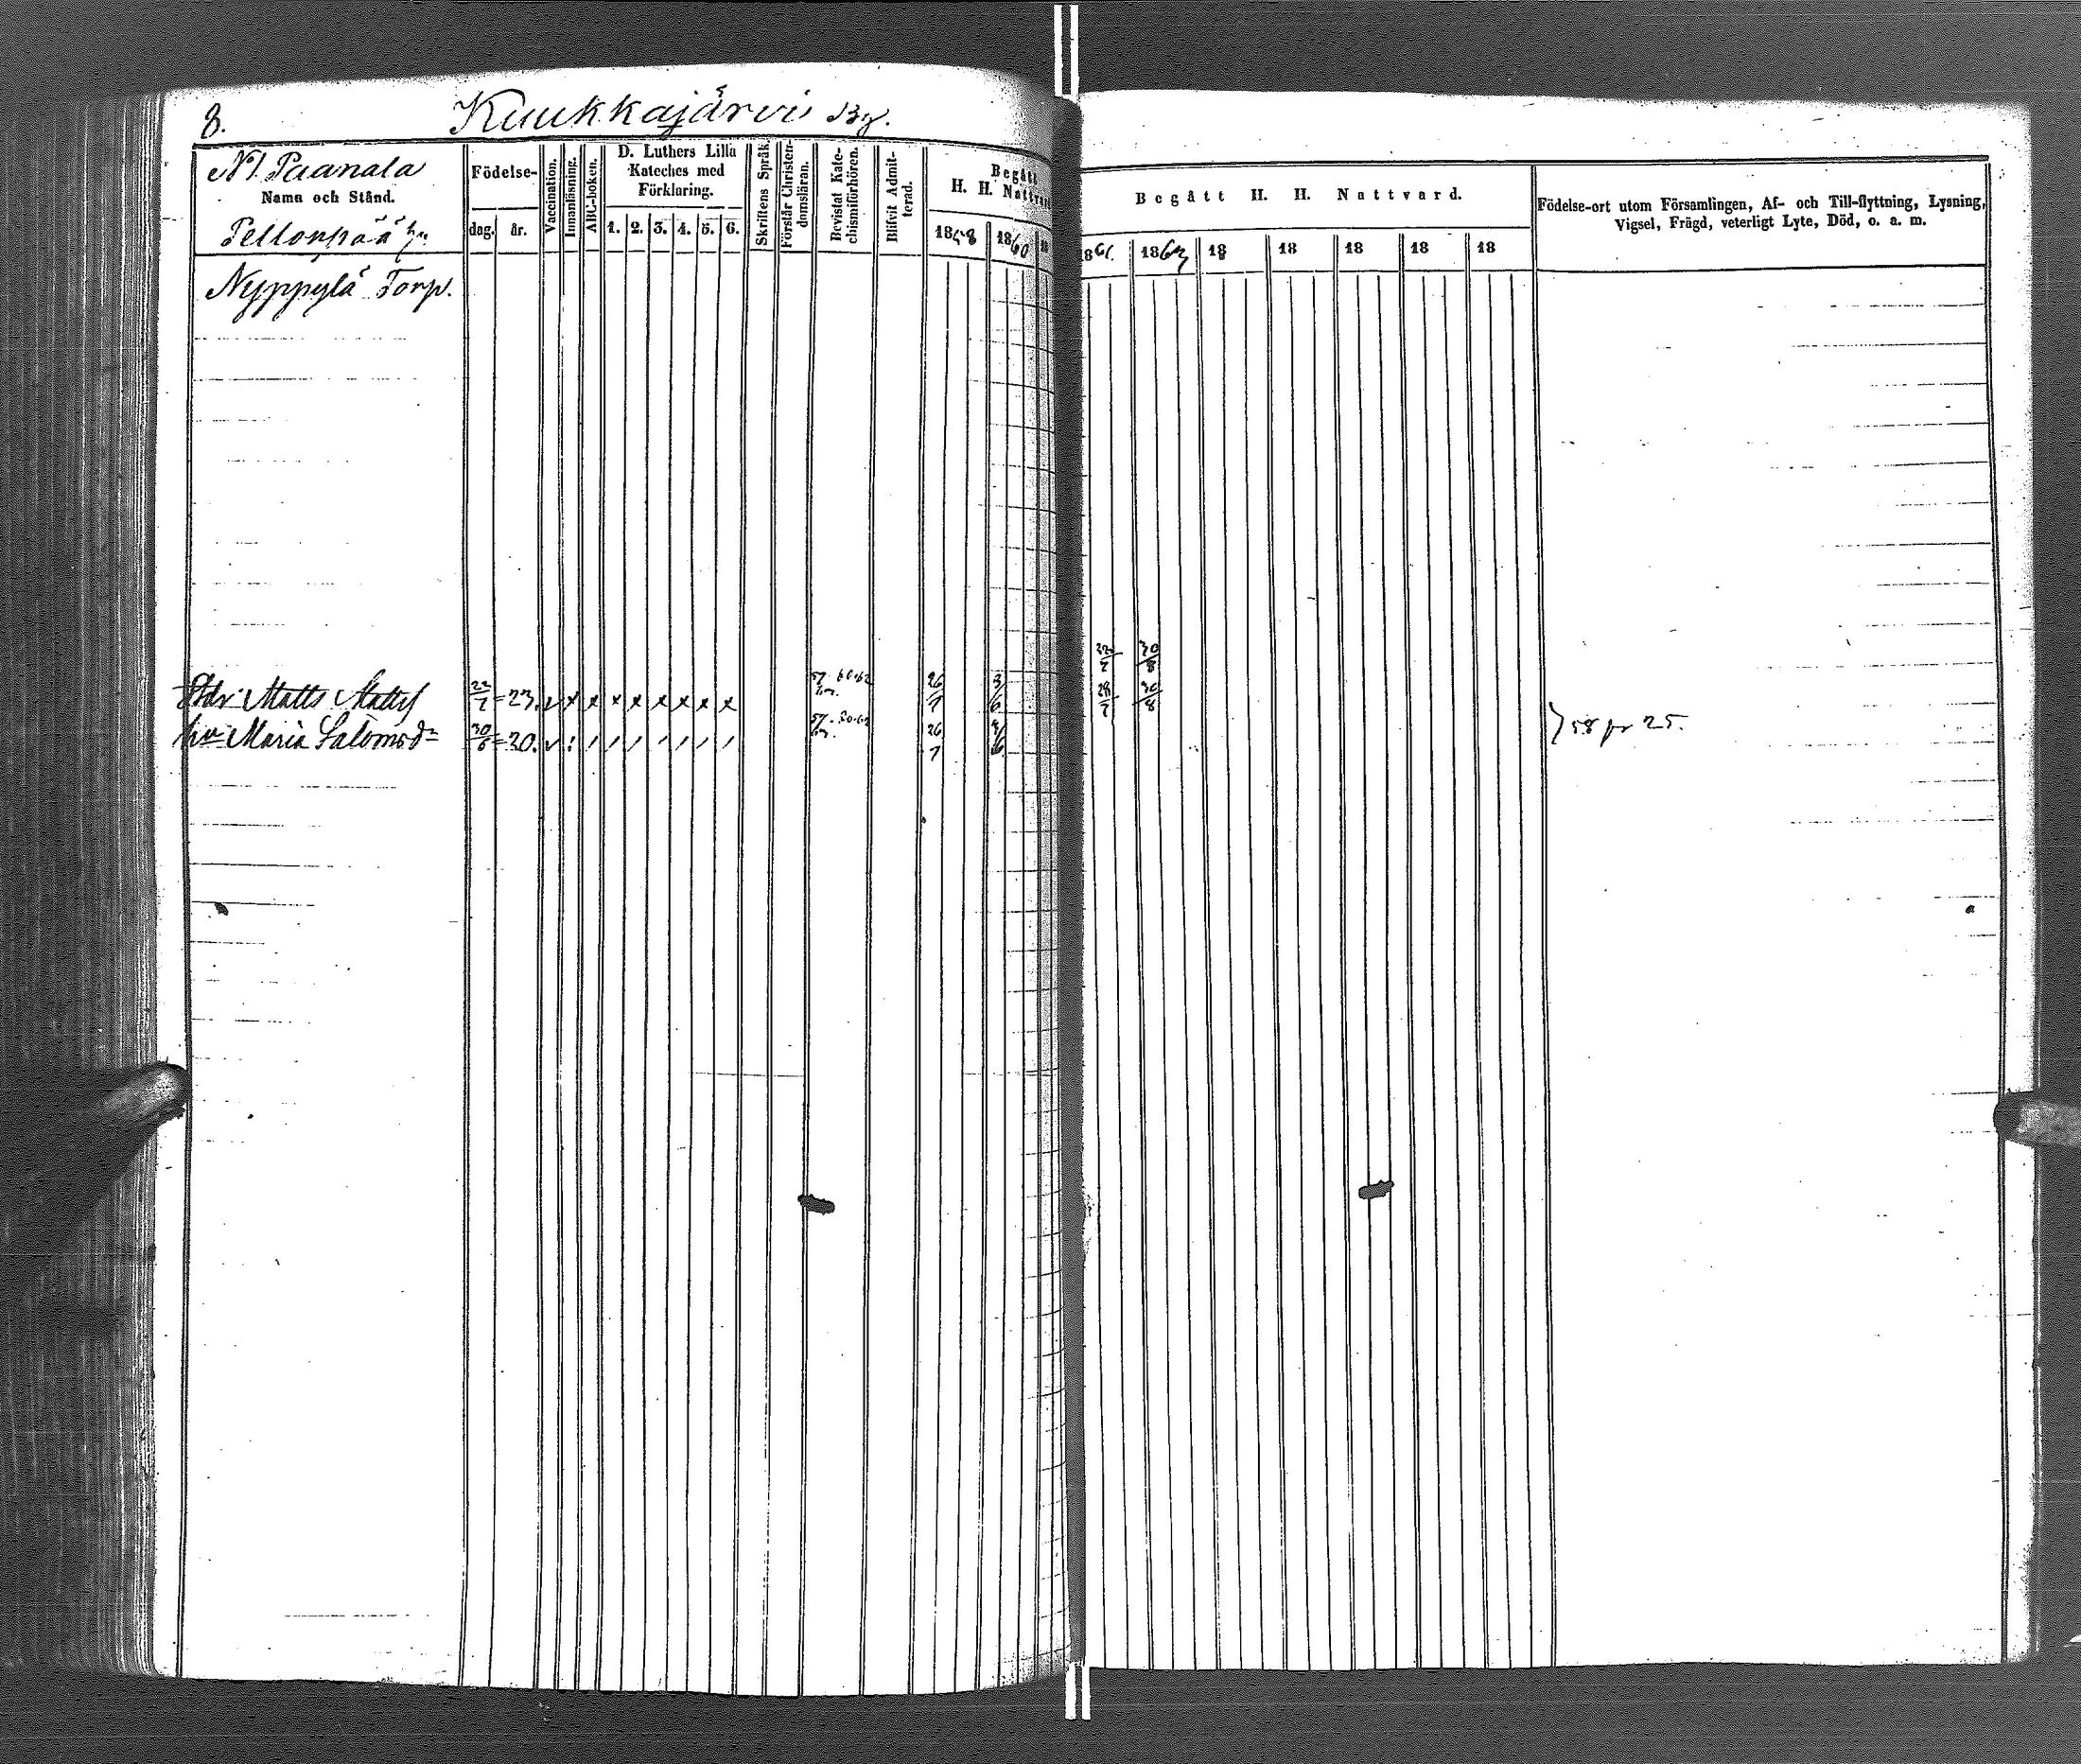 8. Kuukkajärvi By.
N1. Paanala
Namn och Stånd.
Pellonpää hn
Födelse-
dag. år.
Vaccination.
Innanläsning.
ABC-boken.
D. Luthers Lilla
Kateches med
Förklaring.
1. 2. 3. 4. 5. 6.
Skriftens Språk.
Förstår Christen-
domsläran.
Bevistat Kate-
chismiförhören.
Blifvit Admit-
terad.
Begått
H. H. Nattvard
1858 1860 18
Begått H. H. Nattvard.
1861. 1863 18 18 18 18 18
Födelse-ort utom Församlingen, Af- och Till-flyttning, Lysning,
Vigsel, Frägd, veterligt Lyte, Död, o. a. m.
Nyppylä Torp.
30/8
Matts Matts 22/7 = 23. v x x x x x x x x 26/7 3/6 28/7 30/8
hu Maria Salomsdr 30/6 = 30. v : / / / / / / / 26/7 3/6
58 pr 25.